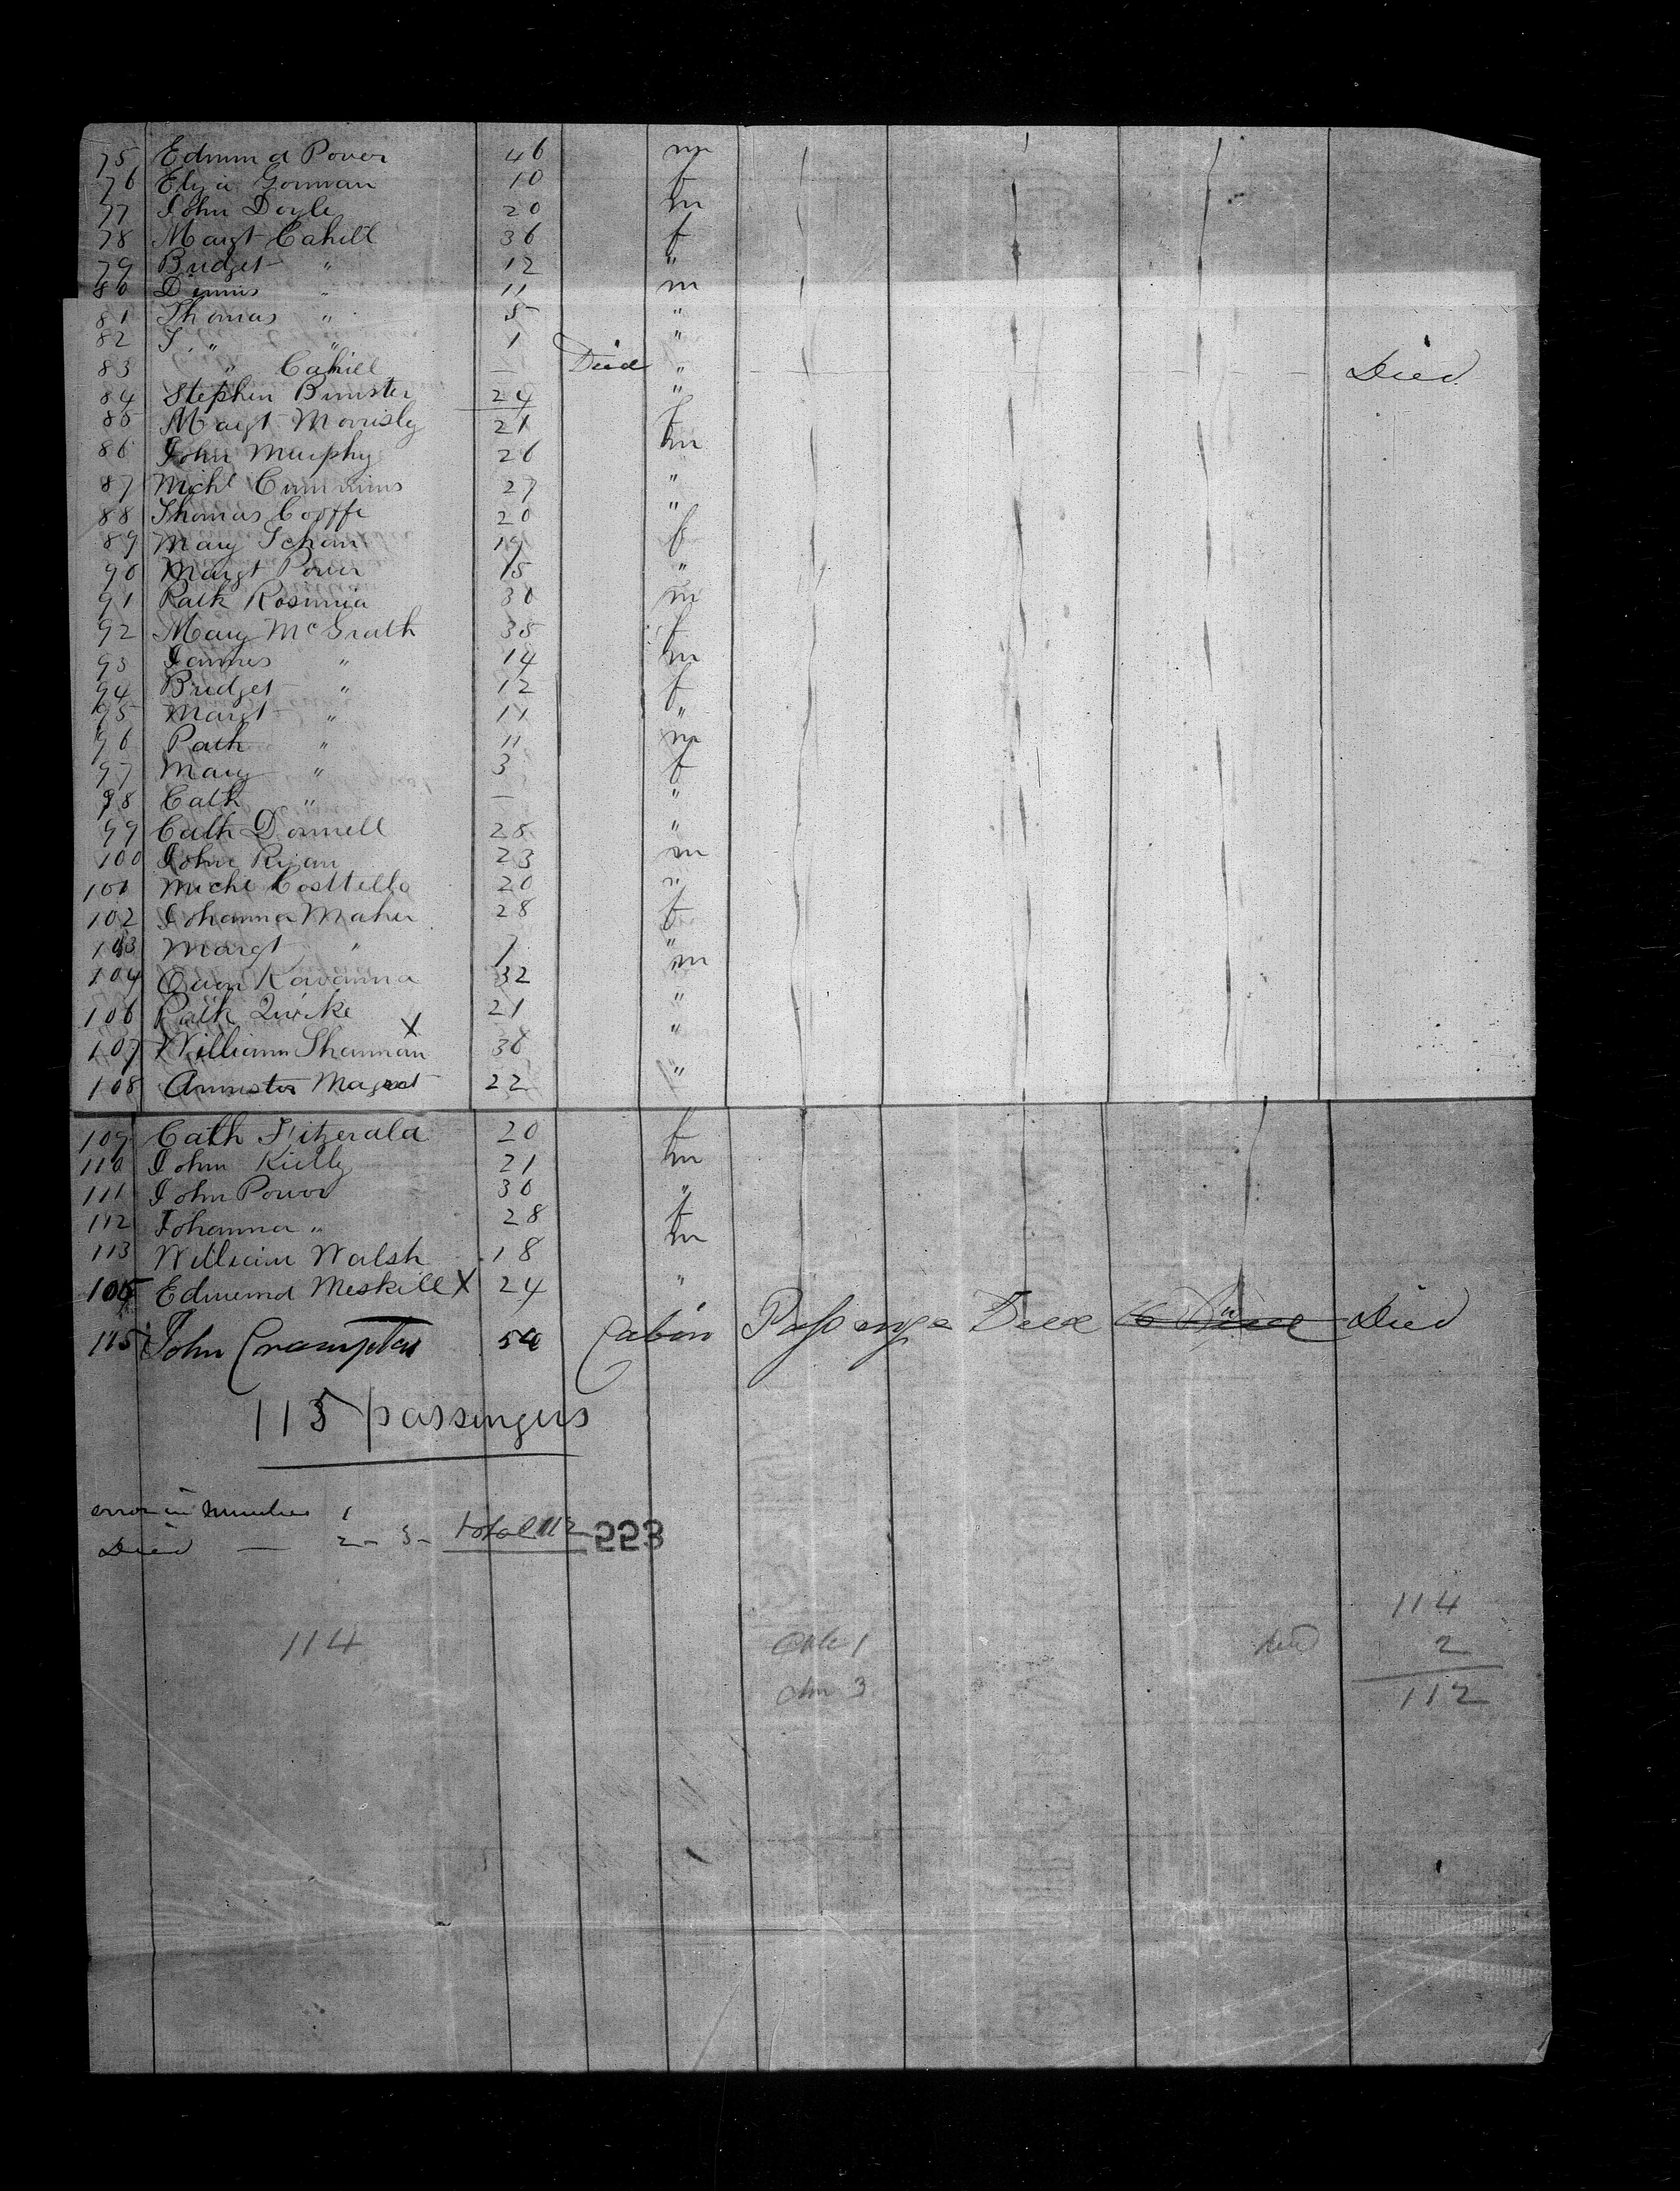 75 Edmund Power 46 m
76 Eliza Gorman 10 f
77 John Doyle 20 m
78 Margt Cahill 36 f
79 Bridget " 12 "
80 Dennis " 11 m
81 Thomas " 5 "
82 J " " 1 "
83 " Cahill — Died " Died
84 Stephen Binister 24 "
85 Margt Morrisly 21 f
86 John Murphy 26 m
87 Michl Cummins 27 "
88 Thomas Cooffe 20 "
89 Mary 19 f
90 Margt Power 15 "
91 Patk 30 m
92 Mary McGrath 35 f
93 James " 14 m
94 Bridget " 12 f
95 Margt " 11 "
96 Path " 11 m
97 Mary " 3 f
98 Cath " — "
99 Cath Donnell 25 "
100 John Ryan 23 m
101 Michl Costtello 20 "
102 Johanna Maher 28 f
103 Margt " 1 "
104 Owen Kavanna 32 m
106 Path Quirke 21 "
107 William Shannan X 30 "
108 Magrat 22 "
109 Cath Fitzerald 20 f
110 John Kielly 21 m
111 John Power 30 "
112 Johanna " 28 f
113 William Walsh 18 m
105 Edmund Meskill X 24 "
115 John Crampton 54 Cabin Passenger Died
115 passengers
error in Number 1
Died — 2 - 3 - total 112 223
114
114 1 died 2
3 112